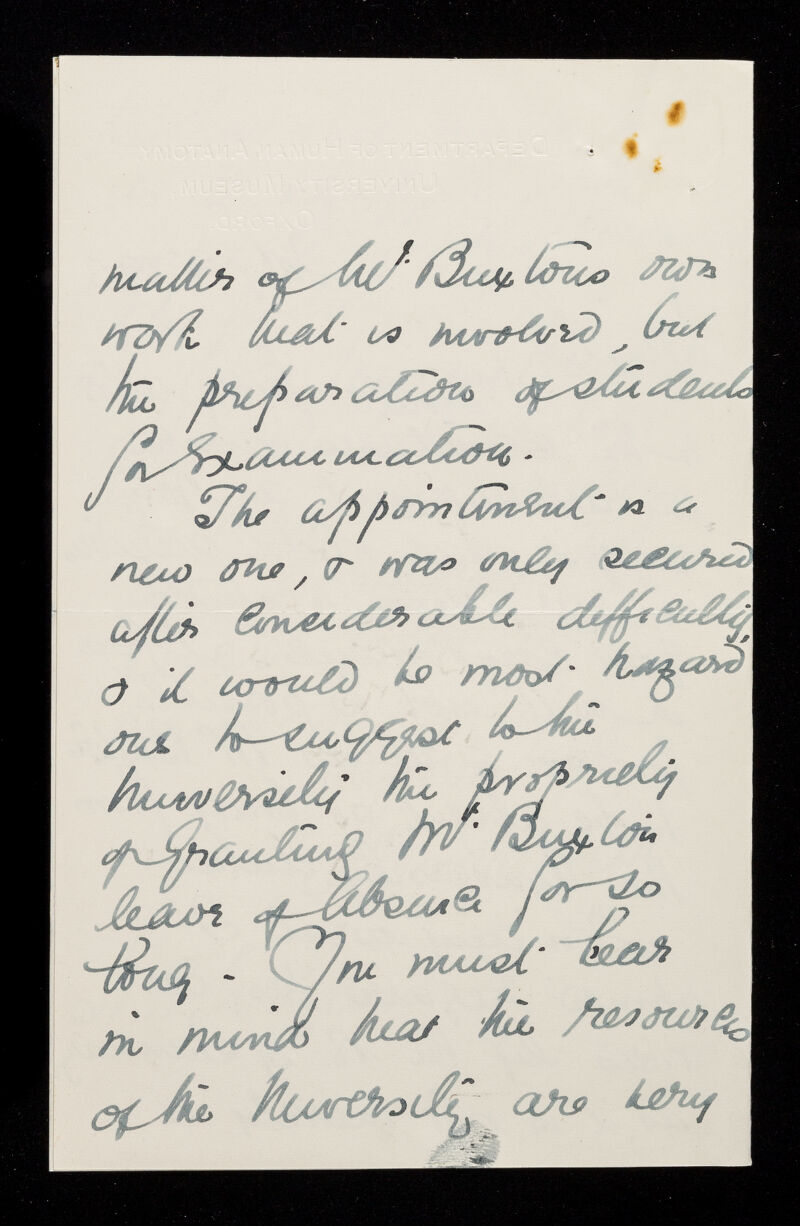 DEPARTMENT OF HUMAN ANATOMY,
UNIVERSITY MUSEUM,
OXFORD.
matter of Mr. Buxtons own
work that is involved, but
the preparation of students
for Examination.
The appointment is a
new one, & was only secured
after considerable difficulty,
& it would be most hazard
ous to suggest to the
University the propriety
of granting Mr. Buxton
leave of absence for so
long. You must bear
in mind that the resources
of the University are very